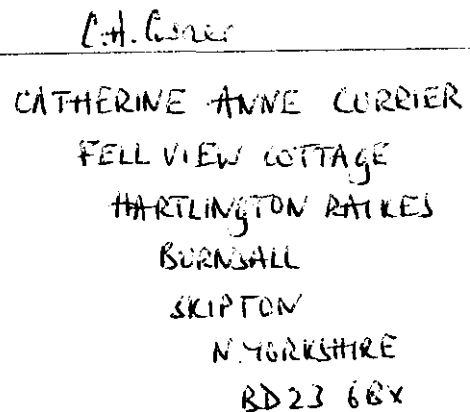 C.A. Currier
CATHERINE ANNE CURRIER
FELL VIEW COTTAGE
HARTLINGTON RAIKES
BURNSALL
SKIPTON
N. YORKSHIRE
BD23 6BX